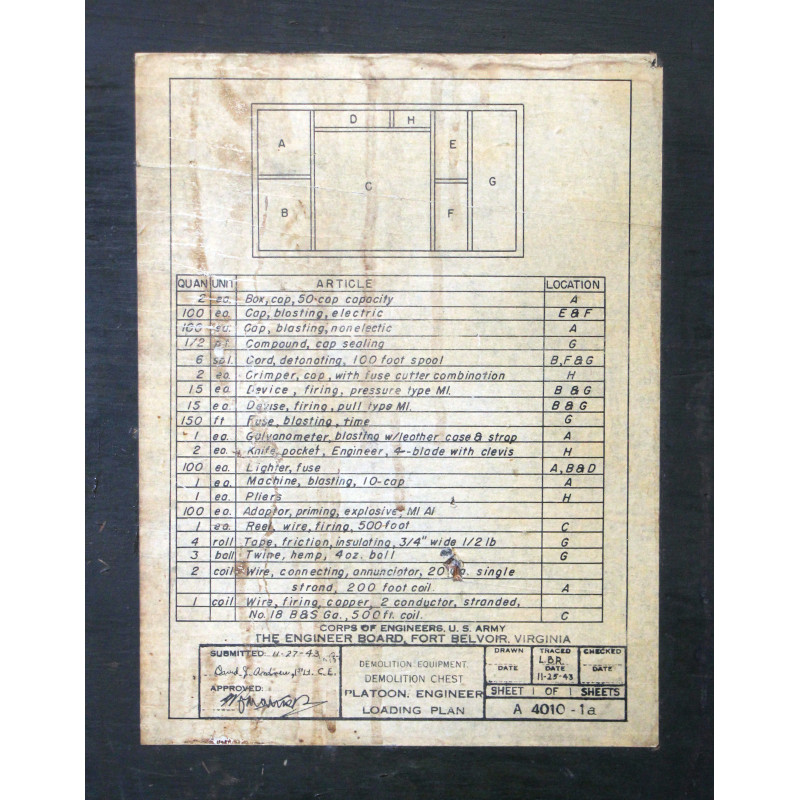 D H
A E
C G
B F
QUAN UNIT ARTICLE LOCATION
2 ea. Box, cap, 50-cap capacity A
100 ea. Cap, blasting, electric E & F
100 ea. Cap, blasting, nonelectic A
1/2 pt. Compound, cap sealing G
6 spl. Cord, detonating, 100 foot spool B, F & G
2 ea. Crimper, cap, with fuse cutter combination H
15 ea. Device, firing, pressure type MI. B & G
15 ea. Devise, firing, pull type MI. B & G
150 ft Fuse, blasting, time G
1 ea. Galvanometer, blasting w/leather case & strap A
2 ea. Knife, pocket, Engineer, 4--blade with clevis H
100 ea. Lighter, fuse A, B & D
1 ea. Machine, blasting, 10-cap A
1 ea. Pliers H
100 ea. Adaptor, priming, explosive, MI AI
1 ea. Reel, wire, firing, 500-foot C
4 roll Tape, friction, insulating, 3/4" wide 1/2 lb G
3 ball Twine, hemp, 4 oz. ball G
2 coil Wire, connecting, annunciator, 20 single
strand, 200 foot coil A
1 coil Wire, firing, copper, 2 conductor, stranded,
No. 18 B&S Ga., 500 ft. coil. C
CORPS OF ENGINEERS, U.S. ARMY
THE ENGINEER BOARD, FORT BELVOIR, VIRGINIA
SUBMITTED: 11-27-43
C.E.
APPROVED:
DEMOLITION EQUIPMENT
DEMOLITION CHEST
PLATOON, ENGINEER
LOADING PLAN
DRAWN TRACED CHECKED
L.B.R.
DATE DATE DATE
11-25-43
SHEET 1 OF 1 SHEETS
A 4010-1a